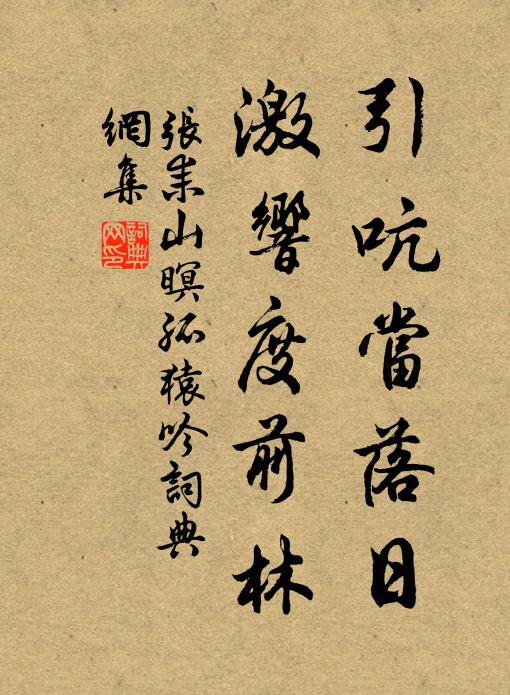 引吭當落日
激響度前林
張耒山暝孤猿吟詞典
網集
詞典
網印